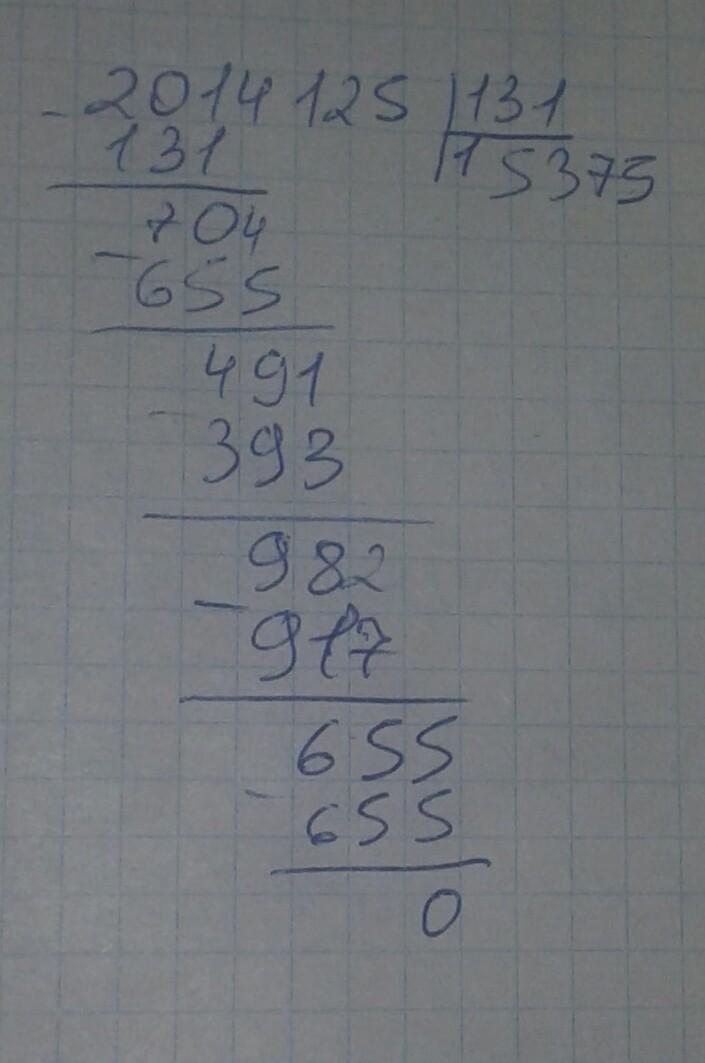 - 2014125 | 131
131 | 15375
704
- 655
491
- 393
982
- 917
655
- 655
0